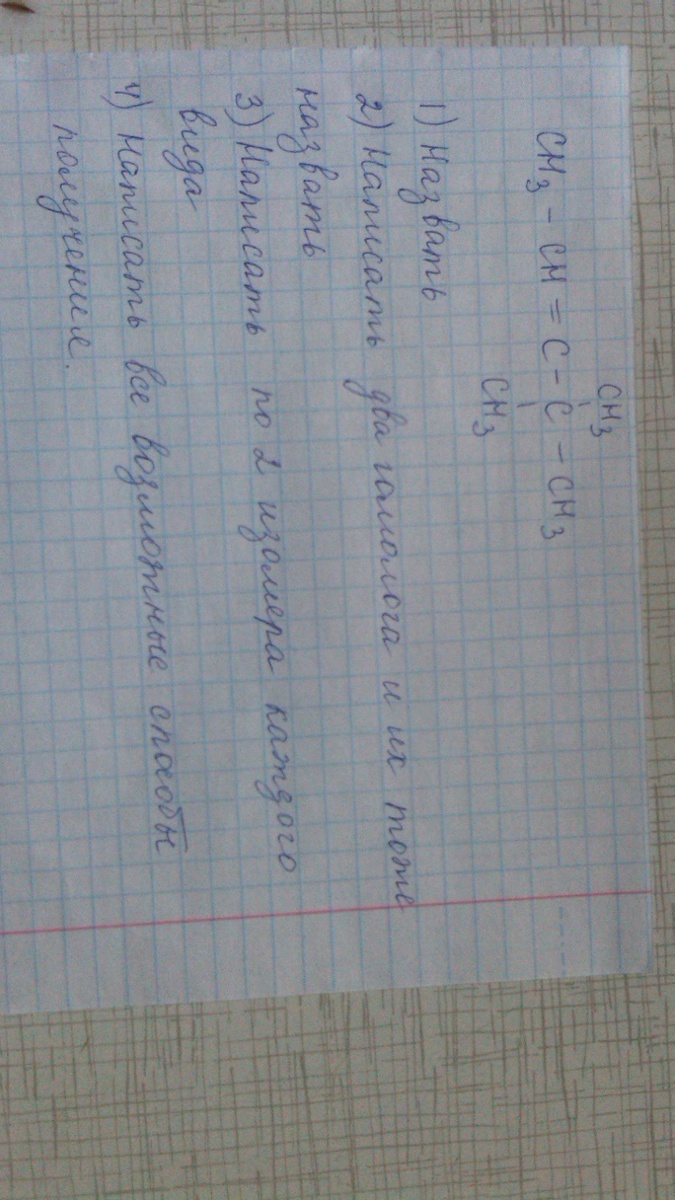 CH₃
CH₃ – CH = C – C – CH₃
CH₃
1) Назвать
2) Написать два гомолога и их тоже
назвать
3) Написать по 2 изомера каждого
вида
4) Написать все возможные способы
получения.